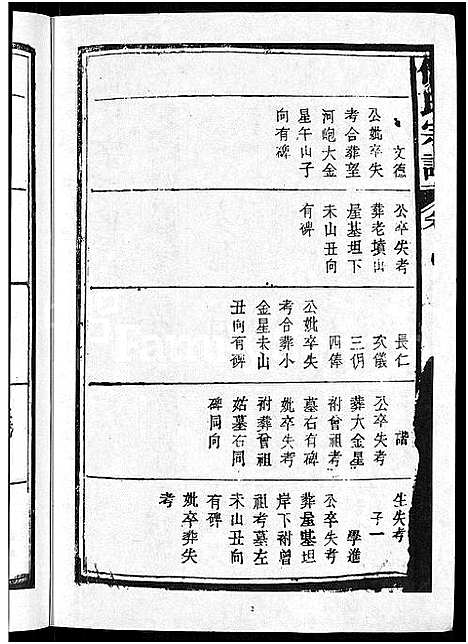 氏宗譜
文德
公妣卒失
考合葬望
河皰大金
星午山子
向有碑
公卒失考
葬老墳山
屋基坦下
未山丑向
有碑
長仁
次儀
三伢
四俸
公妣卒失
考合葬小
金星未山
丑向有碑
諧
公卒失考
葬大金星
祔曾祖考
墓右有碑
妣卒失考
祔葬曾祖
姑墓右同
碑同向
生失考
子一
學進
公卒失考
葬屋基坦
岸下祔曾
祖考墓左
未山丑向
有碑
妣卒葬失
考
2